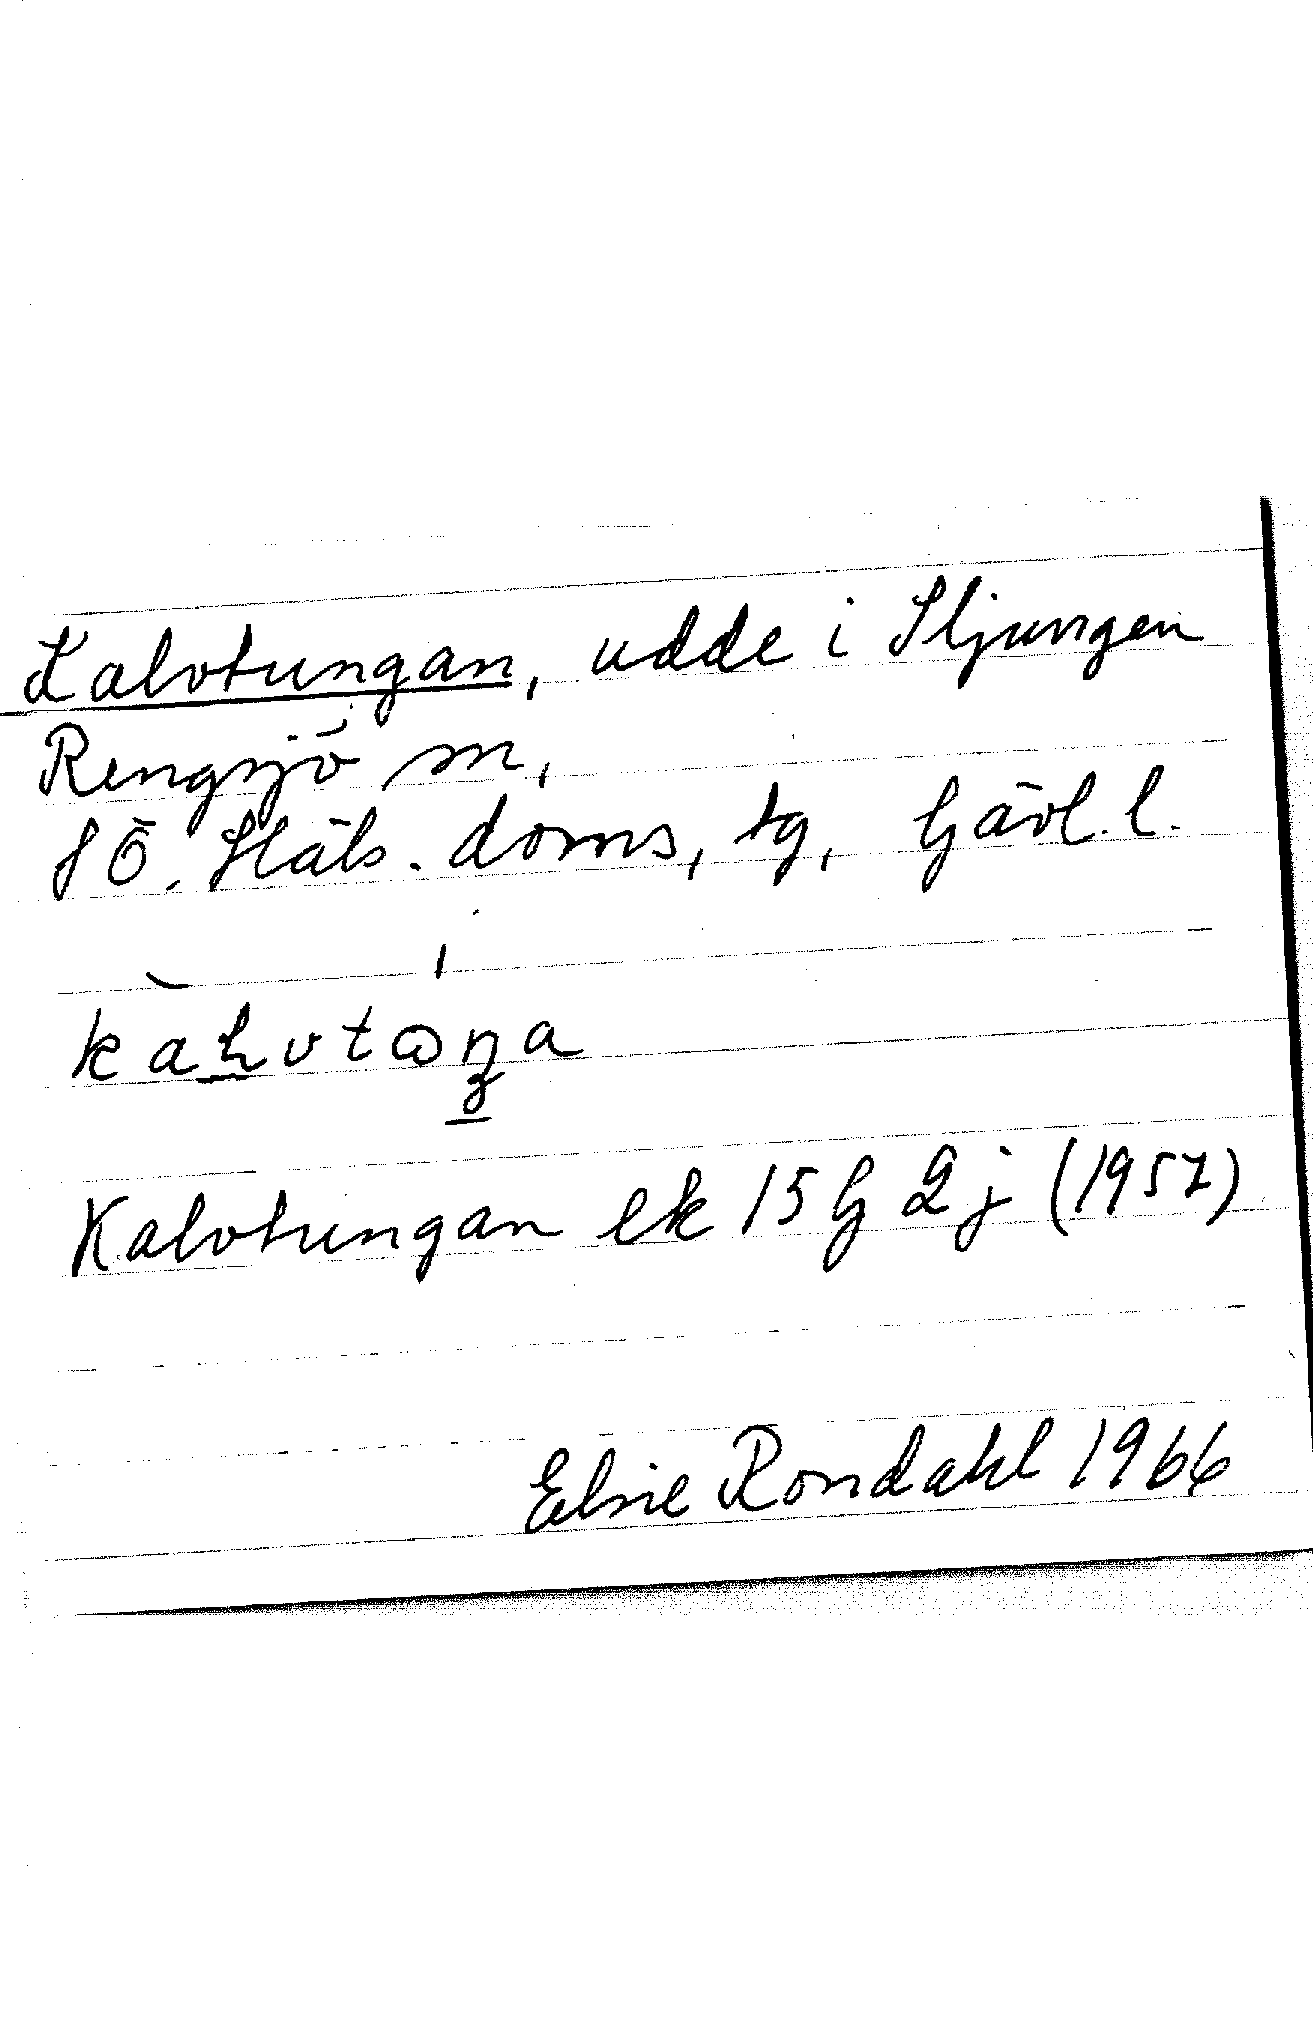 Kalvtungan, udde i Sljungen
Rengsjö sn,
SÖ. Häls. doms, tg, Gävl. l.
Kalvtungan ek 15 G 2 j (1957)
Elsie Rondahl 1966